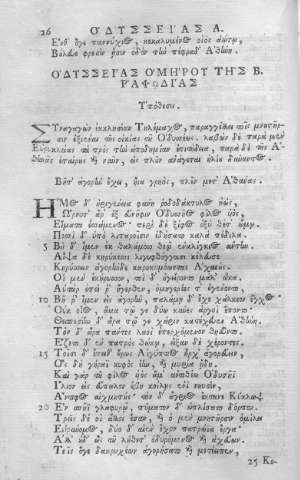 26 Ὀ ΔΥΣΣΕΙ´ΑΣ Α.
Ἔνθ᾽ ὅγε παννύχιος, κεκαλυμμένος οἰὸς ἀώτῳ,
Βούλευε φρεσὶν ᾗσιν ὁδὸν τὴν πέφραδ᾽ Ἀθήνη.
ὈΔΥΣΣΕΙ´ΑΣ ὉΜΗ´ΡΟΥ ΤΗ῀Σ Β.
ῬΑΨΩΔΙ´ΑΣ
Ὑπόθεσις.
Συναγαγὼν ἐκκλησίαν Τηλέμαχος, παραγγέλλει τοῖς μνηστῆρ-
σιν ἐξιέναι τῆς οἰκίας τοῦ Ὀδυσσέως. λαβὼν δὲ παρὰ μὲν
Εὐρυκλείας τὰ πρὸς τὴν ἀποδημίαν ἐπιτήδεια, παρὰ δὲ τῆς Ἀ-
θηνᾶς ἑταίρους καὶ ναῦν, εἰς πλοῦν ἀνάγεται ἡλίου δύναντος.
Βῆτ᾽ ἀγορὴν ἔχει, πλοῦν μετ᾽ Ἀθήνας.
Ἦμος δ᾽ ἠριγένεια φάνη ῥοδοδάκτυλος ἠώς,
Ὤρνυτ᾽ ἄρ᾽ ἐξ εὐνῆφιν Ὀδυσσῆος φίλος υἱὸς,
Εἵματα ἑσσάμενος· περὶ δὲ ξίφος ὀξὺ θέτ᾽ ὤμῳ.
Ποσσὶ δ᾽ ὑπὸ λιπαροῖσιν ἐδήσατο καλὰ πέδιλα.
5 Βῆ δ᾽ ἴμεν ἐκ θαλάμοιο θεῷ ἐναλίγκιος ἄντην.
Αἶψα δὲ κηρύκεσσι λιγυφθόγγοισι κέλευσε
Κηρύσσειν ἀγορήνδε καρηκομόωντας Ἀχαιούς.
Οἱ μὲν ἐκήρυσσον, τοὶ δ᾽ ἠγείροντο μάλ᾽ ὦκα.
Αὐτὰρ ἐπεί ῥ᾽ ἤγερθεν, ὁμηγερέες τ᾽ ἐγένοντο,
10 Βῆ ῥ᾽ ἴμεν εἰς ἀγορὴν, παλάμῃ δ᾽ ἔχε χάλκεον ἔγχος·
Οὐκ οἶος, ἅμα τῷ γε δύω κύνες ἀργοὶ ἕποντο.
Θεσπεσίην δ᾽ ἄρα τῷ γε χάριν κατέχευεν Ἀθήνη.
Τὸν δ᾽ ἄρα πάντες λαοὶ ἐπερχόμενον θηεῦντο.
Ἕζετο δ᾽ ἐν πατρὸς θώκῳ, εἶξαν δὲ γέροντες.
15 Τοῖσι δ᾽ ἔπειθ᾽ ἥρως Αἰγύπτιος ἦρχ᾽ ἀγορεύειν,
Ὃς δὴ γήραϊ κυφὸς ἔην, καὶ μυρία ᾔδη.
Καὶ γὰρ τοῦ φίλος υἱὸς ἅμ᾽ ἀντιθέῳ Ὀδυσῆϊ
Ἴλιον εἰς εὔπωλον ἔβη κοίλῃς ἐνὶ νηυσίν,
Ἄντιφος αἰχμητής· τὸν δ᾽ ἄγριος ἔκτανε Κύκλωψ
20 Ἐν σπῆϊ γλαφυρῷ, πύματον δ᾽ ὡπλίσσατο δόρπον.
Τρεῖς δέ οἱ ἄλλοι ἔσαν, καὶ ὁ μὲν μνηστῆρσιν ὁμίλει
Εὐρύνομος, δύο δ᾽ αἰὲν ἔχον πατρώϊα ἔργα·
Ἀλλ᾽ οὐδ᾽ ὣς τοῦ λήθετ᾽ ὀδυρόμενος καὶ ἀχεύων.
Τοῖς ὅγε δακρυχέων ἀγορήσατο καὶ μετέειπεν,
25 Κέ-